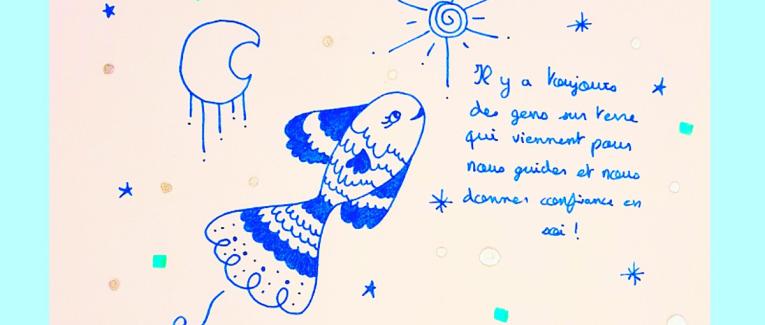 Il y a toujours
des gens sur terre
qui viennent pour
nous guider et nous
donner confiance en
soi !